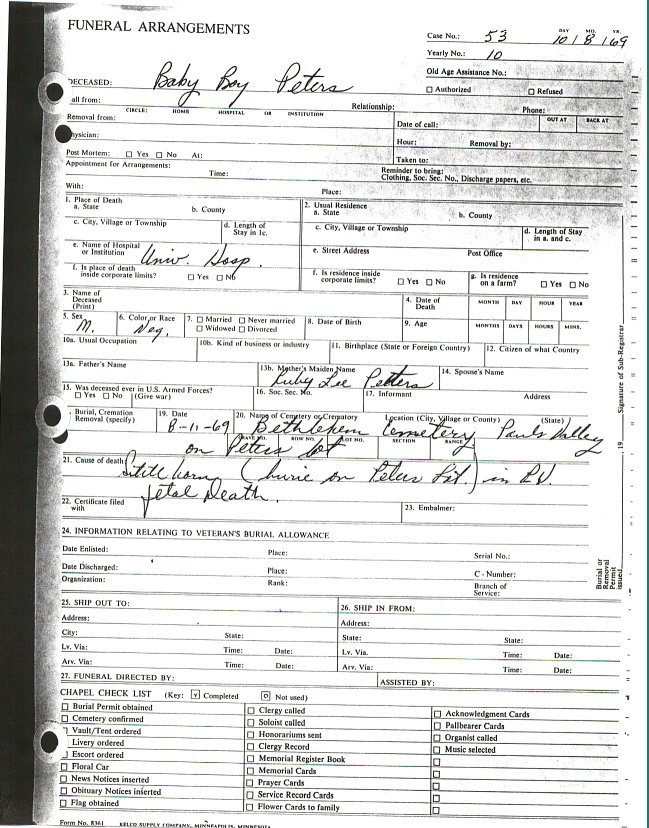 FUNERAL ARRANGEMENTS
DAY MO. YR.
Case No.: 53 10/8/69
Yearly No.: 10
Old Age Assistance No.:
☐ Authorized ☐ Refused
DECEASED: Baby Boy Peters
all from: Relationship: Phone:
CIRCLE: HOME HOSPITAL OR INSTITUTION
Removal from: Date of call: OUT AT BACK AT
hysician: Hour: Removal by:
Post Mortem: ☐ Yes ☐ No At: Taken to:
Appointment for Arrangements: Time: Reminder to bring:
Clothing, Soc. Sec. No., Discharge papers, etc.
With: Place:
1. Place of Death 2. Usual Residence
a. State b. County a. State b. County
c. City, Village or Township d. Length of Stay in 1c. c. City, Village or Township d. Length of Stay in a. and c.
e. Name of Hospital or Institution Univ. Hosp. e. Street Address Post Office
f. Is place of death inside corporate limits? ☐ Yes ☐ No f. Is residence inside corporate limits? ☐ Yes ☐ No g. Is residence on a farm? ☐ Yes ☐ No
3. Name of Deceased (Print) 4. Date of Death MONTH DAY HOUR YEAR
5. Sex M. 6. Color or Race Neg. 7. ☐ Married ☐ Never married ☐ Widowed ☐ Divorced 8. Date of Birth 9. Age MONTHS DAYS HOURS MINS.
10a. Usual Occupation 10b. Kind of business or industry 11. Birthplace (State or Foreign Country) 12. Citizen of what Country
13a. Father's Name 13b. Mother's Maiden Name Ruby Lee Petters 14. Spouse's Name
15. Was deceased ever in U.S. Armed Forces? ☐ Yes ☐ No (Give war) 16. Soc. Sec. No. 17. Informant Address
Burial, Cremation Removal (specify) 19. Date 8-11-69 20. Name of Cemetery or Crematory Location (City, Village or County) (State)
Bethlehem Cemetery Pauls Valley
GRAVE NO. ROW NO. LOT NO. SECTION RANGE
on Peters lot
21. Cause of death: Still born (burie on Peters Lot.) in P.V.
fetal Death.
22. Certificate filed with 23. Embalmer:
24. INFORMATION RELATING TO VETERAN'S BURIAL ALLOWANCE
Date Enlisted: Place: Serial No.:
Date Discharged: Place: C - Number:
Organization: Rank: Branch of Service:
25. SHIP OUT TO: 26. SHIP IN FROM:
Address: Address:
City: State: State: State:
Lv. Via: Time: Date: Lv. Via. Time: Date:
Arv. Via: Time: Date: Arv. Via: Time: Date:
27. FUNERAL DIRECTED BY: ASSISTED BY:
CHAPEL CHECK LIST (Key: ☑ Completed ☐ Not used)
☐ Burial Permit obtained ☐ Clergy called ☐ Acknowledgment Cards
☐ Cemetery confirmed ☐ Soloist called ☐ Pallbearer Cards
Vault/Tent ordered ☐ Honorariums sent ☐ Organist called
Livery ordered ☐ Clergy Record ☐ Music selected
☐ Escort ordered ☐ Memorial Register Book ☐
☐ Floral Car ☐ Memorial Cards ☐
☐ News Notices inserted ☐ Prayer Cards ☐
☐ Obituary Notices inserted ☐ Service Record Cards ☐
☐ Flag obtained ☐ Flower Cards to family ☐
Form No. 8361 KELCO SUPPLY COMPANY, MINNEAPOLIS, MINNESOTA
Signature of Sub-Registrar
19
Burial or Removal Permit issued